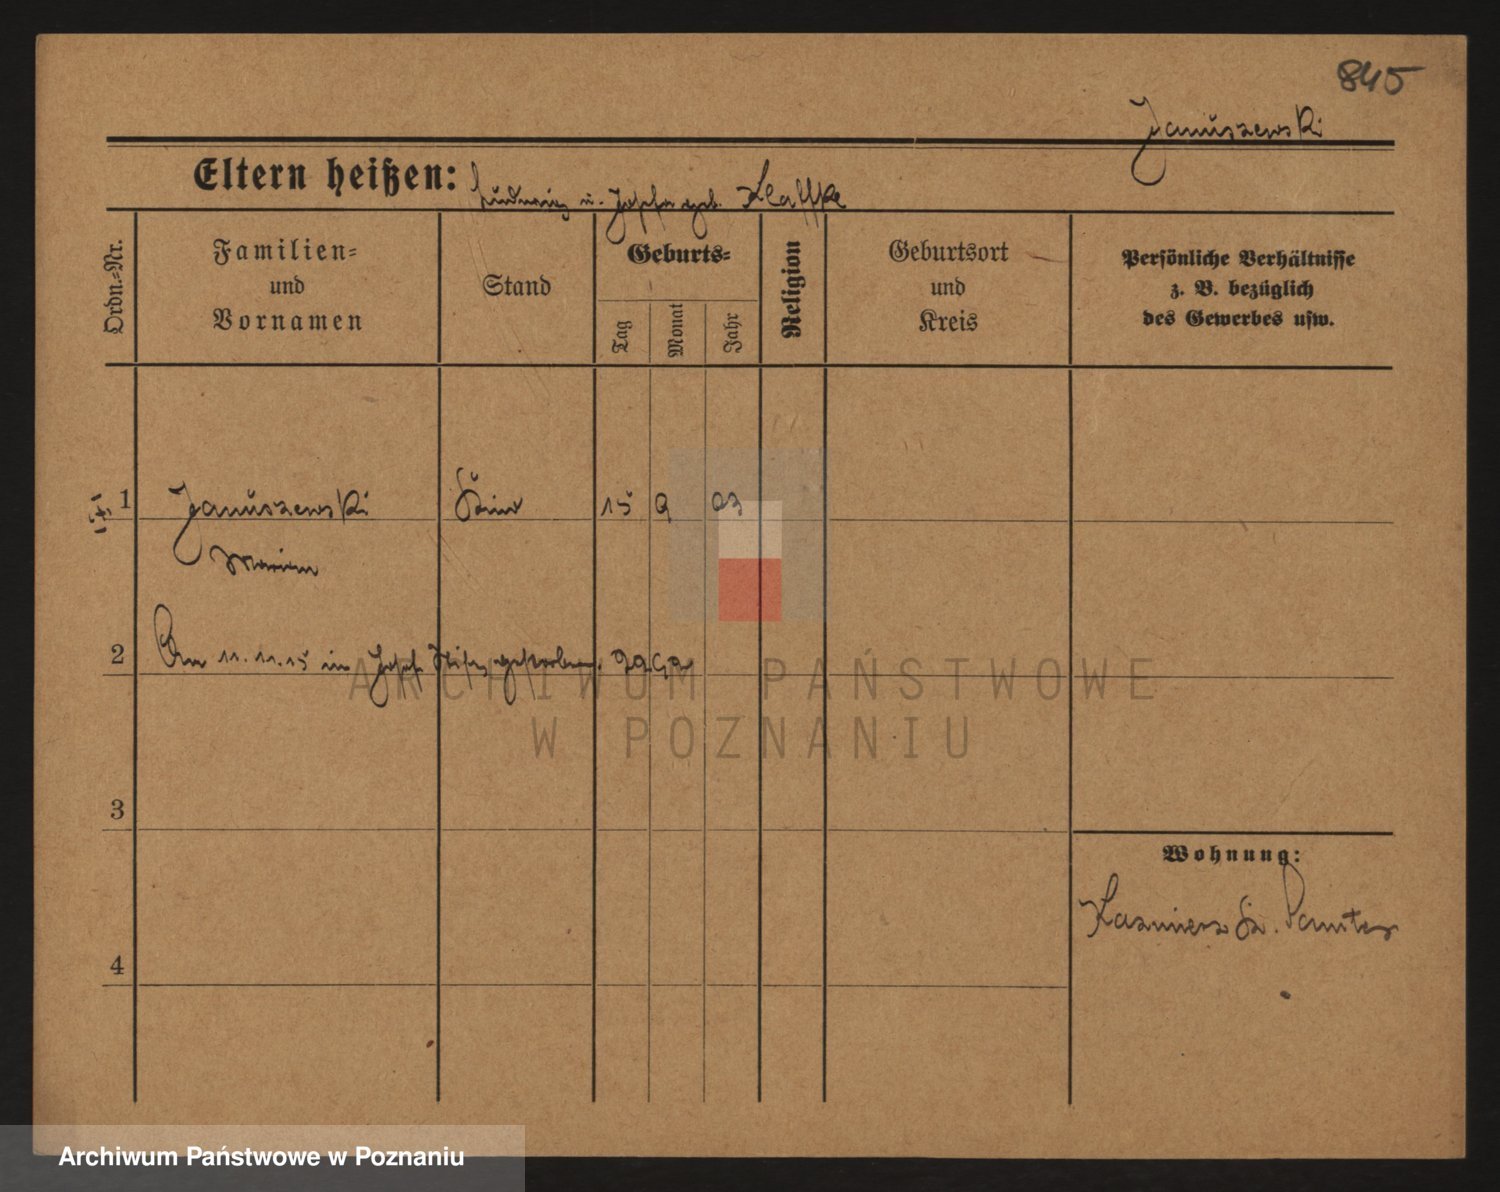 845
Januszewski
Eltern heißen: Ludwig u. Josefa geb. Klaffke
Ordn.=Nr.
Familien=
und
Vornamen
Stand
Geburts=
Tag
Monat
Jahr
Religion
Geburtsort
und
Kreis
Persönliche Verhältnisse
z. B. bezüglich
des Gewerbes usw.
1 Januszewski Kind 15 9 03
Marian
2 Am 11.11.15 im Josef Stift gestorben.
ARCHIWUM PAŃSTWOWE
W POZNANIU
3
Wohnung:
Kazmierz Kr. Samter
4
Archiwum Państwowe w Poznaniu